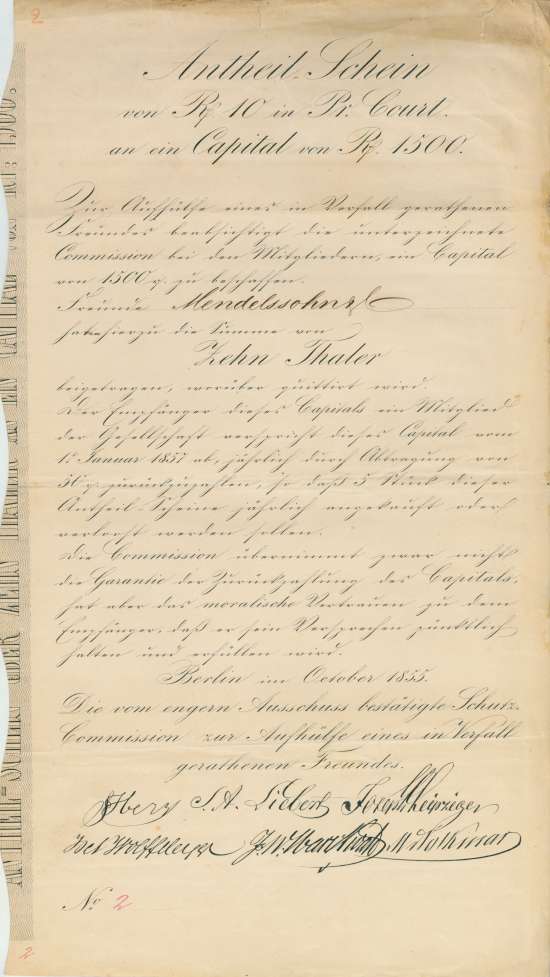 2
Antheil-Schein
von Rf 10 in Pr. Court.
an ein Capital von Rf. 1500.
Zur Aufhülfe eines in Verfall gerathenen
Freundes beabsichtigt die unterzeichnete
Commission bei den Mitgliedern, ein Capital
von 1500 zu beschaffen.
Freund Mendelssohn
hat hierzu die Summe von
Zehn Thaler
beigetragen, worüber quittirt wird.
Der Empfänger dieses Capitals ein Mitglied
der Gesellschaft verspricht dieses Capital vom
1t Januar 1857 ab, jährlich durch Abtragung von
50 zurückzuzahlen, so daß 5 Stück dieser
Antheil-Scheine jährlich angekauft oder
verloost werden sollen.
Die Commission übernimmt zwar nicht
die Garantie der Zurückzahlung des Capitals,
hat aber das moralische Vertrauen zu dem
Empfänger, daß er sein Versprechen pünktlich
halten und erfüllen wird.
Berlin im October 1855.
Die vom engern Ausschuss bestätigte Schutz-
Commission zur Aufhülfe eines in Verfall
gerathenen Freundes.
Herz S. A. Liebert
No 2
ANTHEIL-SCHEIN ÜBER ZEHN THALER AN EIN CAPITAL VON RT: 1500.
2